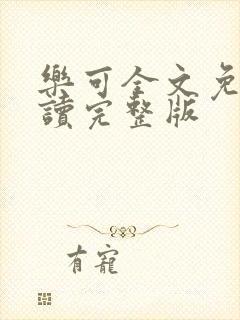 樂可全文免
讀完整版
有寵